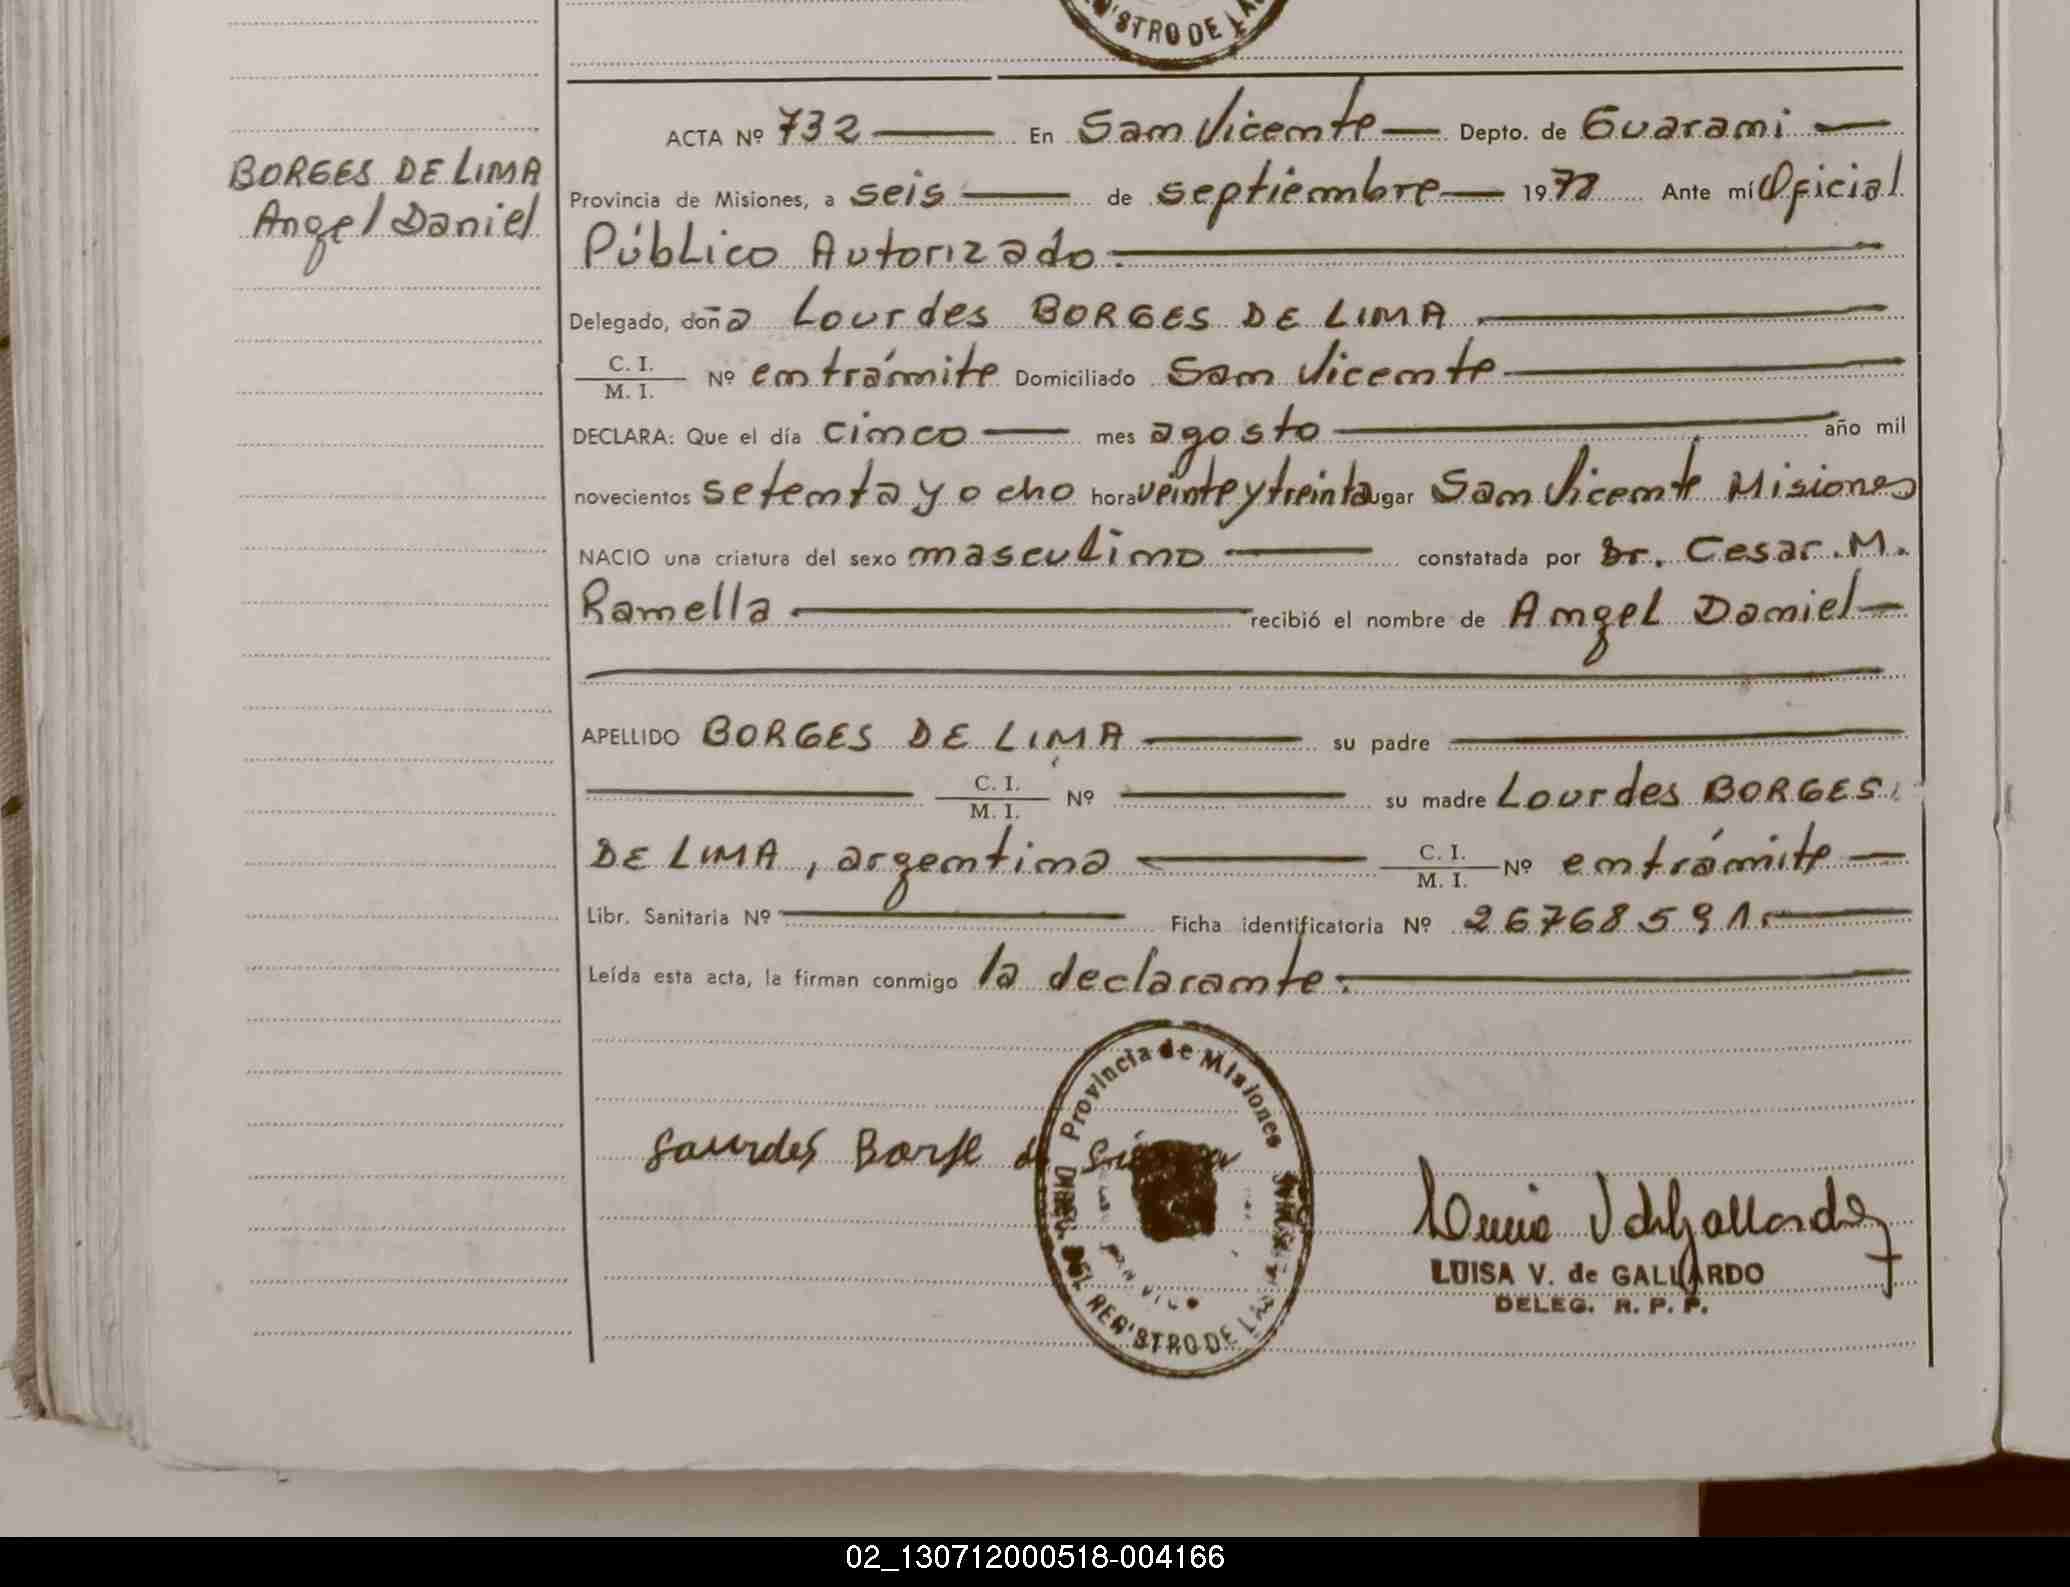 REG'STRO DE LAS
ACTA Nº 732 En San Vicente Depto. de Guaraní
BORGES DE LIMA
Angel Daniel
Provincia de Misiones, a seis de septiembre 1978 Ante mí Oficial
Público Autorizado.
Delegado, doña Lourdes BORGES DE LIMA
C. I.
M. I. Nº en trámite Domiciliado San Vicente
DECLARA: Que el día cinco mes agosto año mil
novecientos setenta y ocho hora veinte y treinta lugar San Vicente Misiones
NACIO una criatura del sexo masculino constatada por Dr. Cesar. M.
Ramella recibió el nombre de Angel Daniel
APELLIDO BORGES DE LIMA su padre
C. I.
M. I. Nº su madre Lourdes BORGES
DE LIMA, argentina C. I.
M. I. Nº en trámite
Libr. Sanitaria Nº Ficha identificatoria Nº 26768591.
Leída esta acta, la firman conmigo la declarante.
Provincia de Misiones
Lourdes Borge de
DEL REG'STRO DE LAS
LUISA V. de GALLARDO
DELEG. R. P. P.
02_130712000518-004166